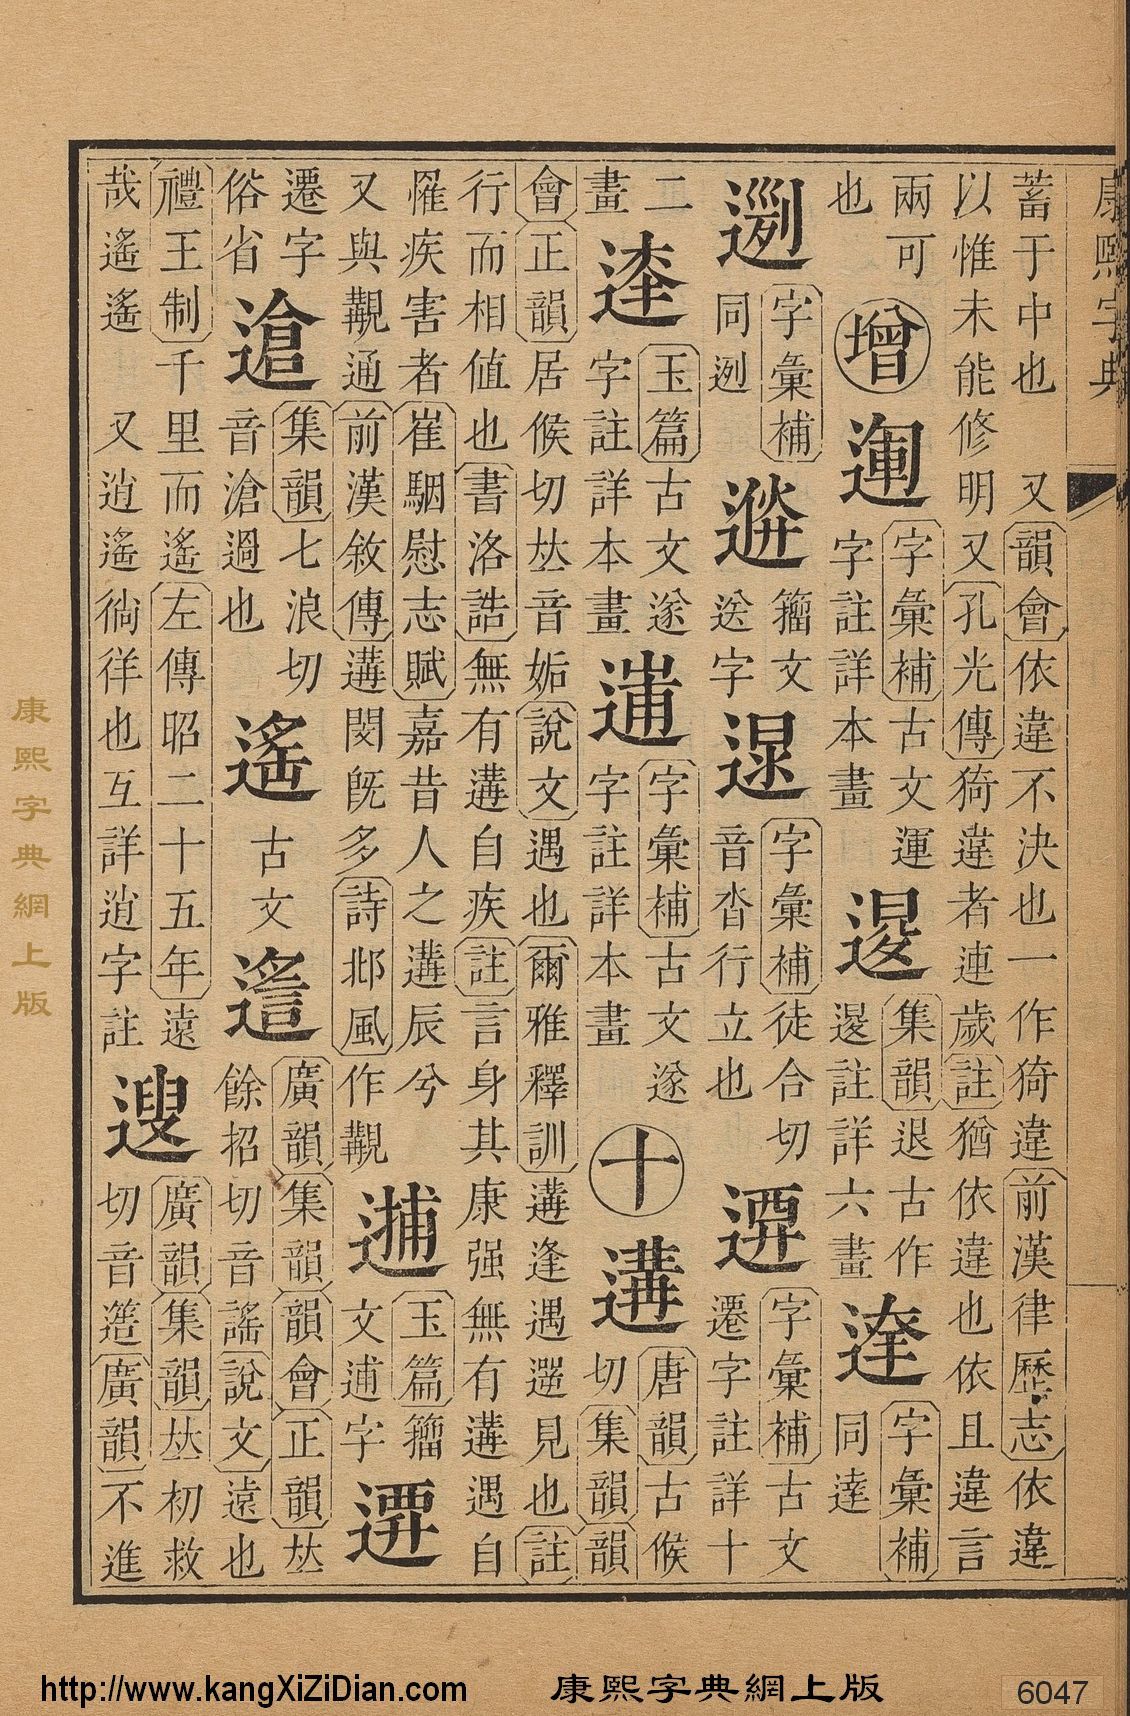 康熙字典
蓄于中也 又韻會依違不決也一作猗違前漢律歷志依違
以惟未能修明又孔光傳猗違者連歲註猶依違也依且違言
兩可
也
增
字彙補古文運
字註詳本畫
集韻退古作
註詳六畫
字彙補
同逹
字彙補
同迾
籀文
送字
字彙補徒合切
音沓行立也
字彙補古文
遷字註詳十
二
畫
玉篇古文遂
字註詳本畫
字彙補古文遂
字註詳本畫
十
遘
唐韻古候
切集韻韻
會正韻居候切𠀤音姤說文遇也爾雅釋訓遘逢遇遻見也註
行而相值也書洛誥無有遘自疾註言身其康强無有遘遇自
罹疾害者崔駰慰志賦嘉昔人之遘辰兮
又與覯通前漢敘傳遘閔旣多詩邶風作覯
玉篇籀
文逋字
遷字
俗省
集韻七浪切
音滄過也
遙
古文
廣韻集韻韻會正韻𠀤
餘招切音謠說文遠也
禮王制千里而遙左傳昭二十五年遠
哉遙遙 又逍遙徜徉也互詳逍字註
廣韻集韻𠀤初救
切音簉廣韻不進
康熙字典網上版
http://www.kangXiZiDian.com 康熙字典網上版 6047